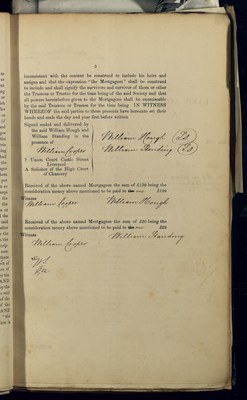 inconsistent with the context be construed to include his heirs and
assigns and that the expression "the Mortgagees" shall be construed
to include and shall signify the survivors and survivor of them or other
the Trustees or Trustee for the time being of the said Society and that
all powers hereinbefore given to the Mortgagees shall be exercisable
by the said Trustees or Trustee for the time being IN WITNESS
WHEREOF the said parties to these presents have hereunto set their
hands and seals the day and year first before written
Signed sealed and delivered by
the said William Hough and
William Standing in the
presence of
William Hough
William Standing
William Cooper
7 Union Court Castle Street
Liverpool
A Solicitor of the High Court
of Chancery
Received of the above named Mortgagees the sum of £120 being the
consideration money above mentioned to be paid to
Witness
William Cooper William Hough
Received of the above named Mortgagees the sum of £20 being the
consideration money above mentioned to be paid to
Witness William Standing
William Cooper